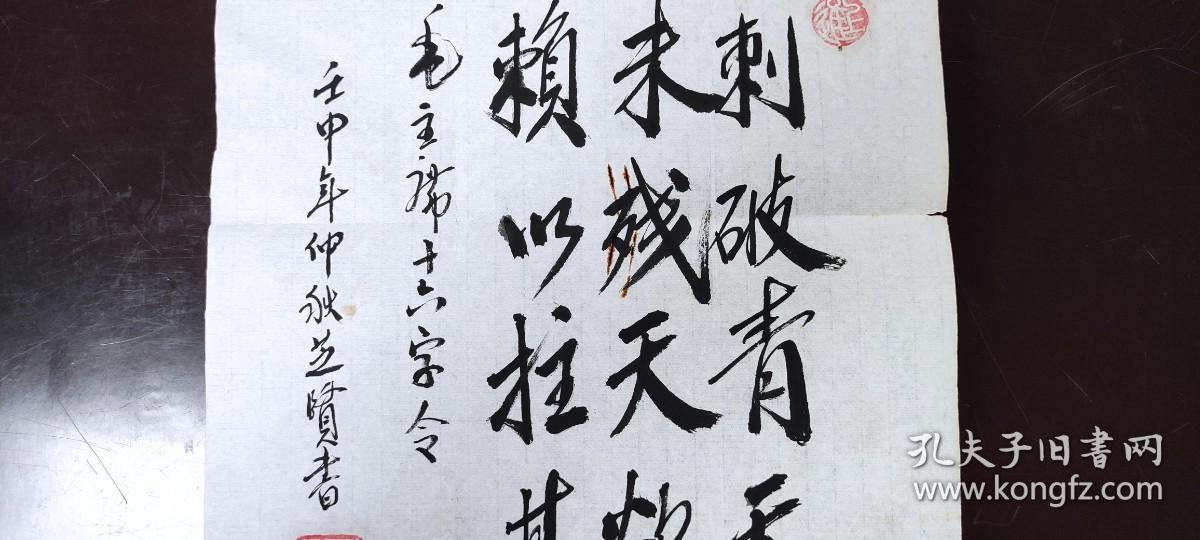 刺破青天
未残天欲
賴以拄其
毛主席十六字令
壬申年仲秋芝賢書
孔夫子旧书网
www.kongfz.com